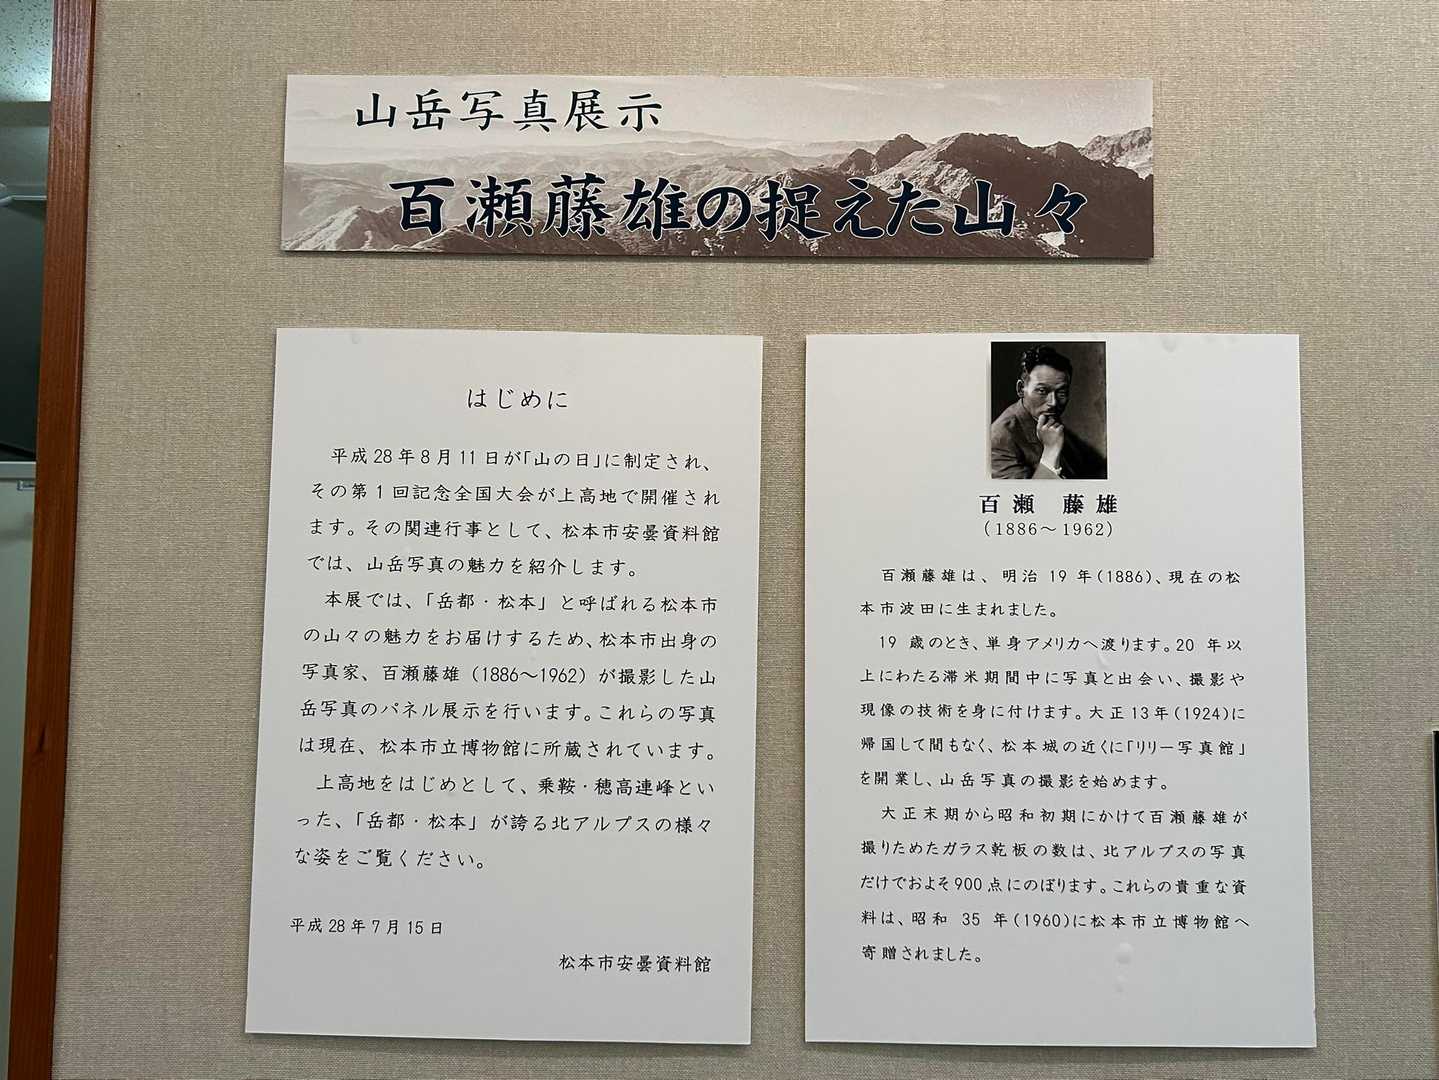 山岳写真展示
百瀬藤雄の捉えた山々
はじめに
平成28年8月11日が「山の日」に制定され、
その第1回記念全国大会が上高地で開催され
ます。その関連行事として、松本市安曇資料館
では、山岳写真の魅力を紹介します。
本展では、「岳都・松本」と呼ばれる松本市
の山々の魅力をお届けするため、松本市出身の
写真家、百瀬藤雄(1886～1962)が撮影した山
岳写真のパネル展示を行います。これらの写真
は現在、松本市立博物館に所蔵されています。
上高地をはじめとして、乗鞍・穂高連峰とい
った、「岳都・松本」が誇る北アルプスの様々
な姿をご覧ください。
平成28年7月15日
松本市安曇資料館
百瀬 藤雄
(1886～1962)
百瀬藤雄は、明治19年(1886)、現在の松
本市波田に生まれました。
19歳のとき、単身アメリカへ渡ります。20年以
上にわたる滞米期間中に写真と出会い、撮影や
現像の技術を身に付けます。大正13年(1924)に
帰国して間もなく、松本城の近くに「リリー写真館」
を開業し、山岳写真の撮影を始めます。
大正末期から昭和初期にかけて百瀬藤雄が
撮りためたガラス乾板の数は、北アルプスの写真
だけでおよそ900点にのぼります。これらの貴重な資
料は、昭和35年(1960)に松本市立博物館へ
寄贈されました。